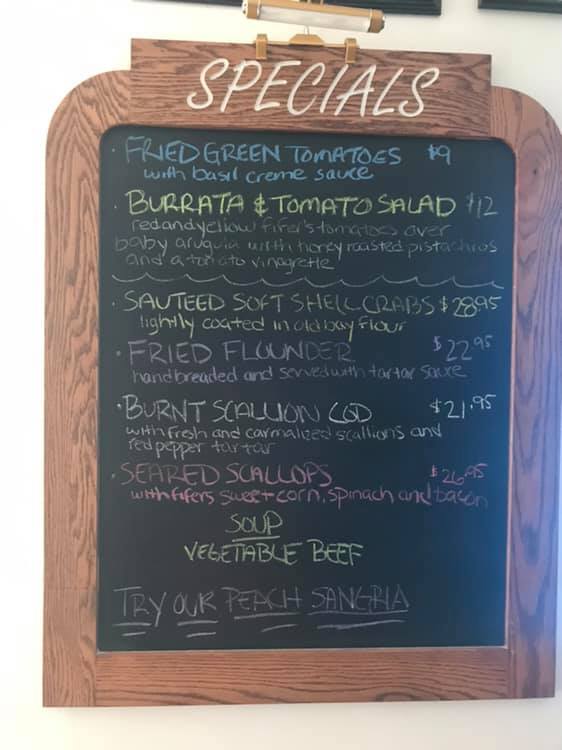 SPECIALS
· FRIED GREEN TOMATOES $9
with basil creme sauce
· BURRATA & TOMATO SALAD $12
red and yellow fifer's tomatoes over
baby arugula with honey roasted pistachios
and a tomato vinagrette
· SAUTEED SOFT SHELL CRABS $28.95
lightly coated in old bay flour
· FRIED FLOUNDER $22.95
hand breaded and served with tartar sauce
· BURNT SCALLION COD $21.95
with fresh and carmalized scallions and
red pepper tartar
· SEARED SCALLOPS $26.95
with fifers sweet corn, spinach and bacon
SOUP
VEGETABLE BEEF
TRY OUR PEACH SANGRIA